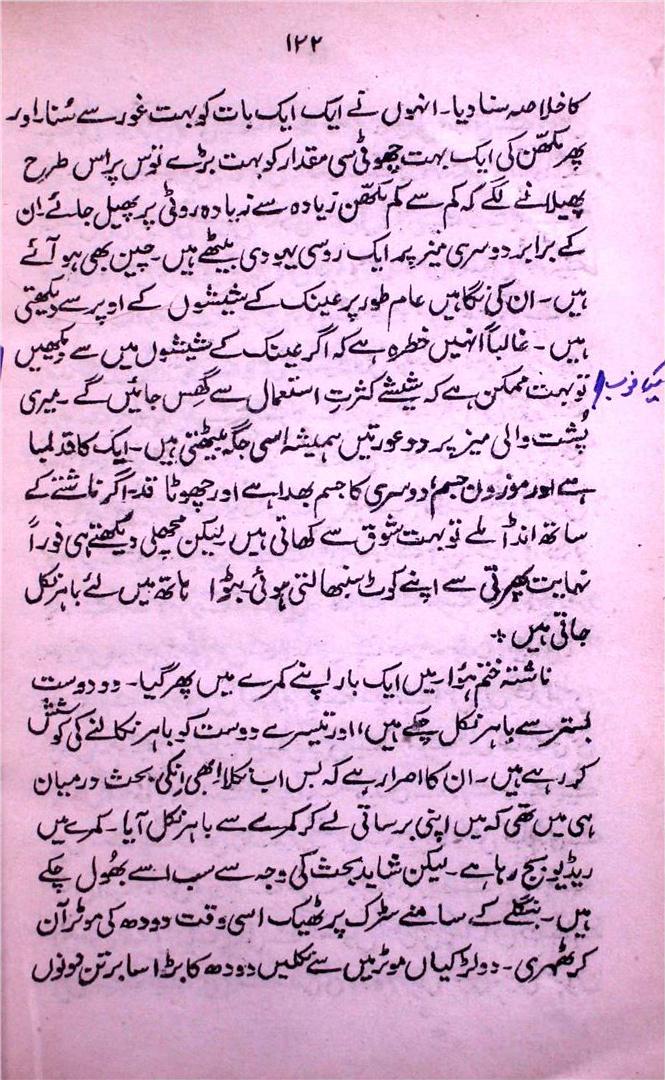 ۱۲۲
کا خلاصہ سنا دیا۔ انہوں نے ایک ایک بات کو بہت غور سے سُنا۔ اور
پھر مکھّن کی ایک بہت چھوٹی سی مقدار کو بہت بڑے توس پر اس طرح
پھیلانے لگے کہ کم سے کم مکھّن زیادہ سے زیادہ روٹی پر پھیل جائے۔ ان
کے برابر دوسری میز پر ایک روسی یہودی بیٹھے ہیں۔ چین بھی ہو آئے
ہیں۔ ان کی نگاہیں عام طور پر عینک کے شیشوں کے اوپر سے دیکھتی
ہیں۔ غالباً انہیں خطرہ ہے کہ اگر عینک کے شیشوں میں سے دیکھیں
تو بہت ممکن ہے کہ شیشے کثرتِ استعمال سے گھِس جائیں گے۔ میری
پُشت والی میز پر دو عورتیں ہمیشہ اسی جگہ بیٹھتی ہیں۔ ایک کا قد لمبا
ہے اور موزون جسم، دوسری کا جسم بھدا ہے اور چھوٹا قد۔ اگر ناشتے کے
ساتھ انڈا ملے تو بہت شوق سے کھاتی ہیں۔ لیکن مچھلی دیکھتے ہی فوراً
نہایت پھرتی سے اپنے کوٹ سنبھالتی ہوئی۔ بٹوا ہاتھ میں لئے باہر نکل
جاتی ہیں ٭
ناشتہ ختم ہؤا۔ میں ایک بار اپنے کمرے میں پھر گیا۔ دو دوست
بستر سے باہر نکل چکے ہیں، اور تیسرے دوست کو باہر نکالنے کی کوشش
کر رہے ہیں۔ ان کا اصرار ہے کہ بس اب نکلا۔ ابھی انکی بحث درمیان
ہی میں تھی کہ میں اپنی برساتی لے کر کمرے سے باہر نکل آیا۔ کمرے میں
ریڈیو بج رہا ہے۔ لیکن شاید بحث کی وجہ سے سب اسے بھُول چکے
ہیں۔ بنگلے کے سامنے سڑک پر ٹھیک اسی وقت دودھ کی موٹر آن
کر ٹھہری۔ دو لڑکیاں موٹر میں سے نکلیں دودھ کا بڑا سا برتن دونوں